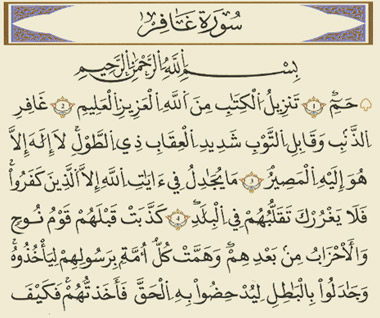 سُورَةُ غَافِرٍ
بِسْمِ ٱللَّهِ ٱلرَّحْمَٰنِ ٱلرَّحِيمِ
حمٓ ۝١ تَنزِيلُ ٱلْكِتَٰبِ مِنَ ٱللَّهِ ٱلْعَزِيزِ ٱلْعَلِيمِ ۝٢ غَافِرِ
ٱلذَّنۢبِ وَقَابِلِ ٱلتَّوْبِ شَدِيدِ ٱلْعِقَابِ ذِى ٱلطَّوْلِ ۖ لَآ إِلَٰهَ إِلَّا
هُوَ ۖ إِلَيْهِ ٱلْمَصِيرُ ۝٣ مَا يُجَٰدِلُ فِىٓ ءَايَٰتِ ٱللَّهِ إِلَّا ٱلَّذِينَ كَفَرُوا۟
فَلَا يَغْرُرْكَ تَقَلُّبُهُمْ فِى ٱلْبِلَٰدِ ۝٤ كَذَّبَتْ قَبْلَهُمْ قَوْمُ نُوحٍ
وَٱلْأَحْزَابُ مِنۢ بَعْدِهِمْ ۖ وَهَمَّتْ كُلُّ أُمَّةٍۭ بِرَسُولِهِمْ لِيَأْخُذُوهُ ۖ
وَجَٰدَلُوا۟ بِٱلْبَٰطِلِ لِيُدْحِضُوا۟ بِهِ ٱلْحَقَّ فَأَخَذْتُهُمْ ۖ فَكَيْفَ